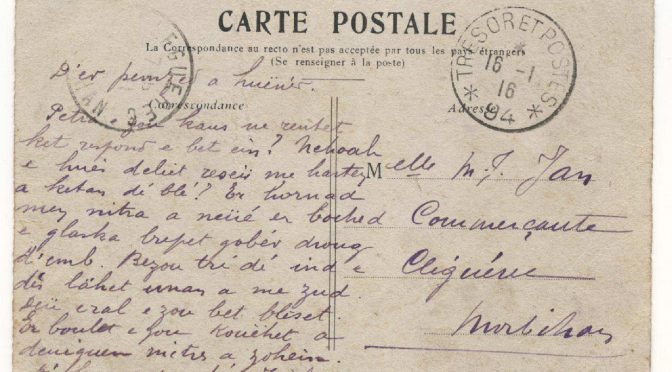 CARTE POSTALE
La Correspondance au recto n'est pas acceptée par tous les pays étrangers
(Se renseigner à la poste)
D'er pemzeg a huïnér.
Correspondance
Adresse
TRESOR ET POSTES
16 - 1
16
* 94 *
Petra e zou kaus ne rentet
ket respond e bet ein? Nehoah
e hués deliet reseü me hartey
a ketan dé blé? Er hornad
men nitra a neüé er boched
e glaska brepet gobér droug
d'emb. Bezou tri dé ind e
dès lahet unan a me zud.
Deu eral e zou bet bliset.
Er boulet e zou kouéhet a
deuiguen mètrs a zohein.
Melle M. J. Jan
Commerçante
Cléguérec
Morbihan